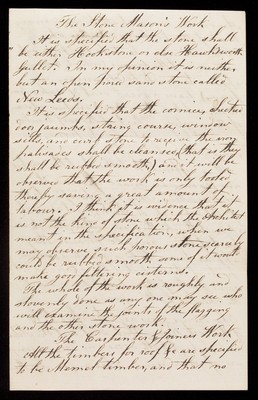 The Stone Mason's Work
It is specified that the stone shall
be either Hookstone or else Hawksworth
Gullet. In my opinion it is neither
but an open pored sand stone called
New Leeds.
It is specified that the cornices, chimneys
door jaumbs, string course, window
sills, and curb stone to receive the iron
palisades shall be cleansed, (that is they
shall be rubbed smooth) and it will be
observed that the work is only tooled
thereby saving a great amount of
labour. I think it is evidence that it
is not the kind of stone which the Architect
meant in the specification, when we
may observe such porous stone scarcely
could be rubbed smooth some of it would
make good filtering cisterns.
The whole of the work is roughly and
slovenly done as any one may see who
will examine the joints of the flagging
and the other stone work.
The Carpenter & Joiners Work
All the timbers for roof &c are specified
to be Memel timber, and that no